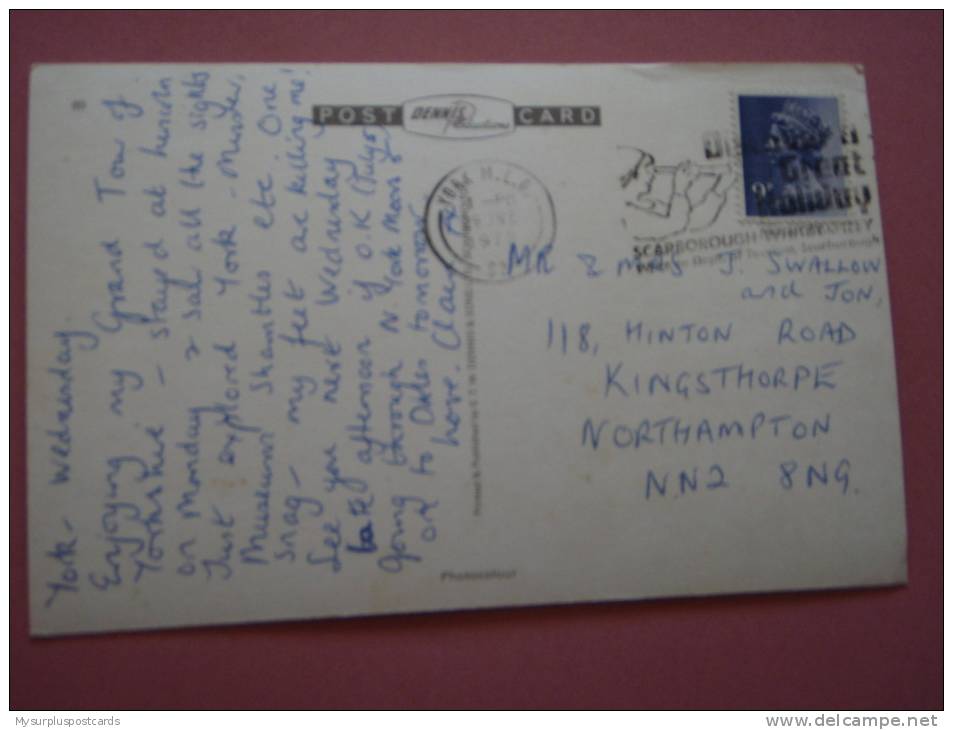 POST DENNIS Productions CARD
York - Wednesday.
Enjoying my Grand Tour of
Yorkshire - stayed at
on Monday & saw all the sights
Just explored York - Minster,
Museum Shambles etc. One
snag - my feet are killing me!
See you next Wednesday
late afternoon if O.K (July
Going through N. York Moors
on to Dales tomorrow
love. Claire
YORK
Great
Holiday
SCARBOROUGH WHITBY FILEY
9P
MR & MRS J. SWALLOW
and JON,
118, HINTON ROAD
KINGSTHORPE
NORTHAMPTON
NN2 8NG.
Photocolour
Mysurpluspostcards
www.delcampe.net